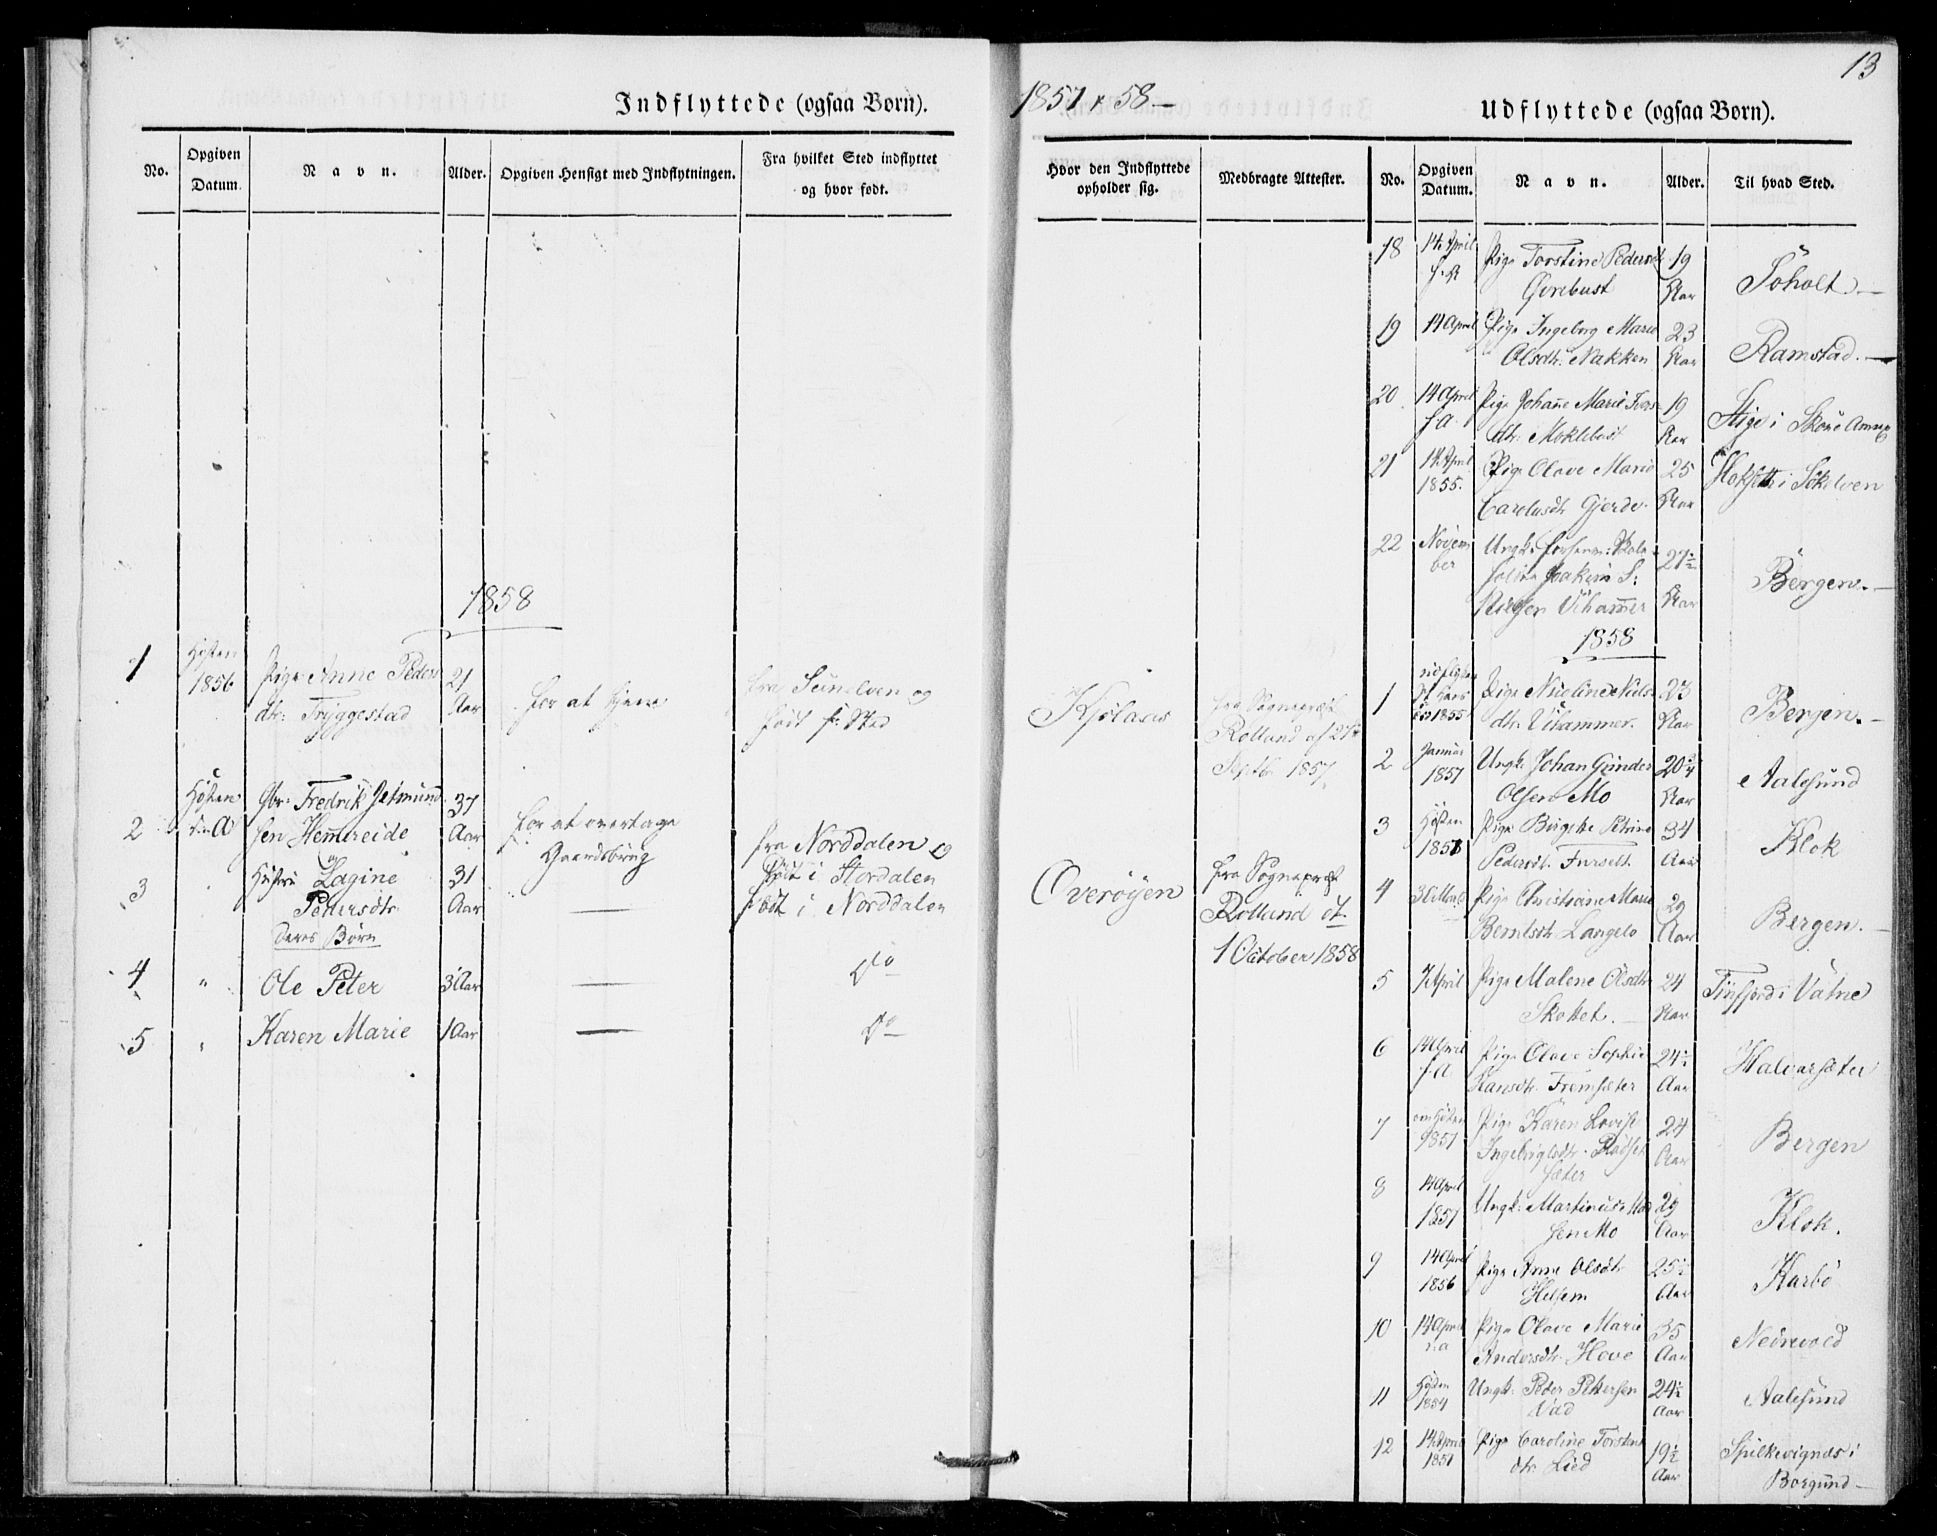 Indflyttede (ogsaa Børn).
No.
Opgiven Datum.
Navn.
Alder.
Opgiven Hensigt med Indflytningen.
Fra hvilket Sted indflyttet
og hvor født.
1858
1
Høsten
1856
Pige Anne Peders
dtr: Tryggestad
21
Aar
for at tjene
fra Sunelven og
født s: Sted
2
Høsten
Gbr: Fredrik Jetmund
sen Hemreide
37
Aar
for at overtage
Gaardsbrug
fra Norddalen og
født i Stordalen
3
Hustru Lagine
Pedersdtr
31
Aar
født i Norddalen
Deres Børn
4
"
Ole Peter
3 Aar
Do
5
"
Karen Marie
1 Aar
Do
13
1857 & 58 —
Udflyttede (ogsaa Børn).
Hvor den Indflyttede
opholder sig.
Medbragte Attester.
No.
Opgiven
Datum.
Navn.
Alder.
Til hvad Sted.
Kjølaas
fra Sognepræst
Rolland af 27
Septbr 1857.
Overøyen
fra Sognepræst
Rolland dt
1 October 1858
18
14 April
Pige Torstine Peders
19
Aar
Søholt. —
19
14 April
Pige Ingeborg Marie
Olsdtr. Nakken
23
Aar
Ramstad. —
20
14 April
s A.
Pige Johane Marie Iver
dtr. Moklebust
19
Aar
21
14 April
1855.
Pige Olave Marie
Carelusdtr Gjerde.
25
Aar
22
Novem
ber
Ungk:
Joakim S:
Vihammer
27½
Aar
Bergen. —
1858
1
1855
Pige Nicoline Niels
dtr. Vihammer.
23
Aar
Bergen. —
2
Januar
1857
Ungk: Johan Gunder
Olsen Mo
20¾
Aar
Aalesund
3
Høsten
Pige Birgithe Petrine
Pedersdtr.
34
Aar
Klok
4
Pige Christiane Marie
Berntsdtr. Langelo
29
Aar
Bergen. —
5
7 April
Pige Malene Olsdtr
Skottet. —
24
Aar
Tinfjord i Vatne
6
14 April
s A
Pige Olave Sophie
Hansdtr. Fremsæter
24½
Aar
Halvarsæter
7
Pige Karen Lovise
24
Aar
Bergen
8
14 April
1857
Ungk. Martinus
sen Mo
29
Aar
Klok.
9
14 April
1856
Pige Anne Olsdtr
Helsem
25½
Aar
Karbø
10
14 April
Pige Olave Marie
Andersdtr. Hove
35
Aar
11
Høsten
1854
Ungk. Peder Pettersen
Vad
24½
Aar
Aalesund
12
14 April
1857
Pige Caroline Torstens
dtr. Lied
19½
Aar
Spilkevignæs i
Borgund —